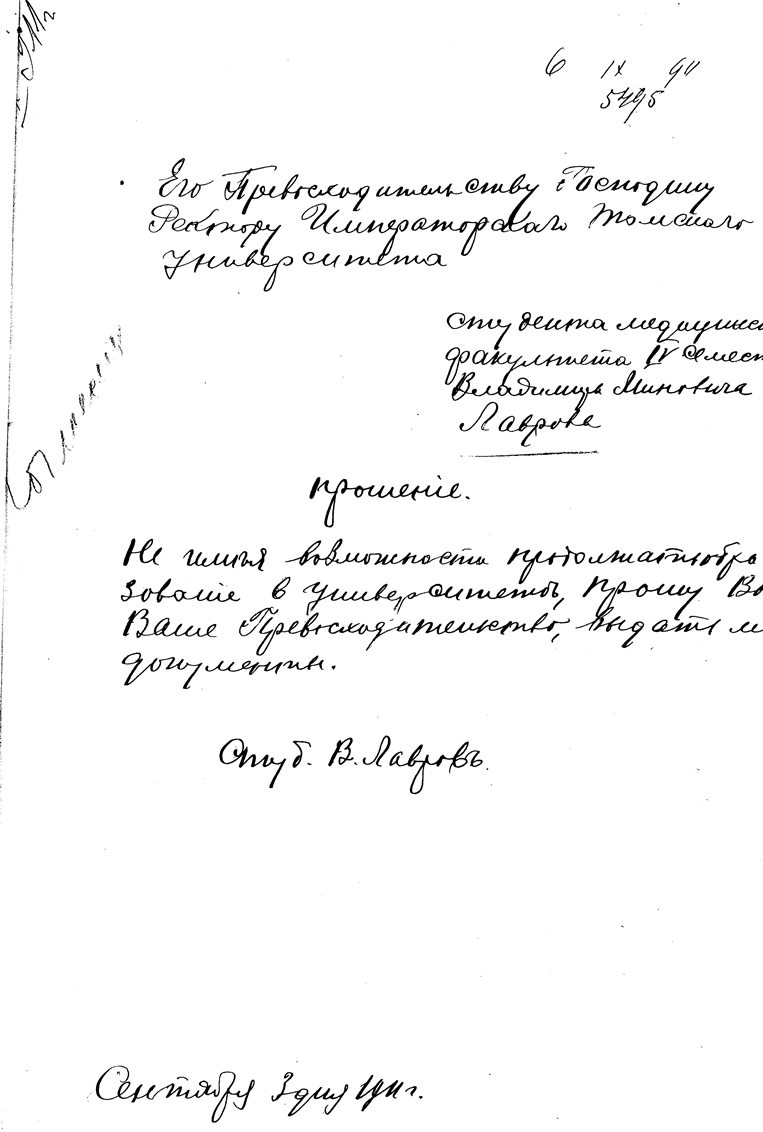 6 IX 911
5495
Его Превосходительству Господину
Ректору Императорскаго Томскаго
Университета
студента медицинск
факультета IV семест
Владимира Миновича
Лаврова
прошеніе.
Не имѣя возможности продолжать обра
зованіе в университетѣ, прошу Ва
Ваше Превосходительство, выдать м
документы.
Студ. В. Лавровъ.
Сентября 3 дня 1911 г.